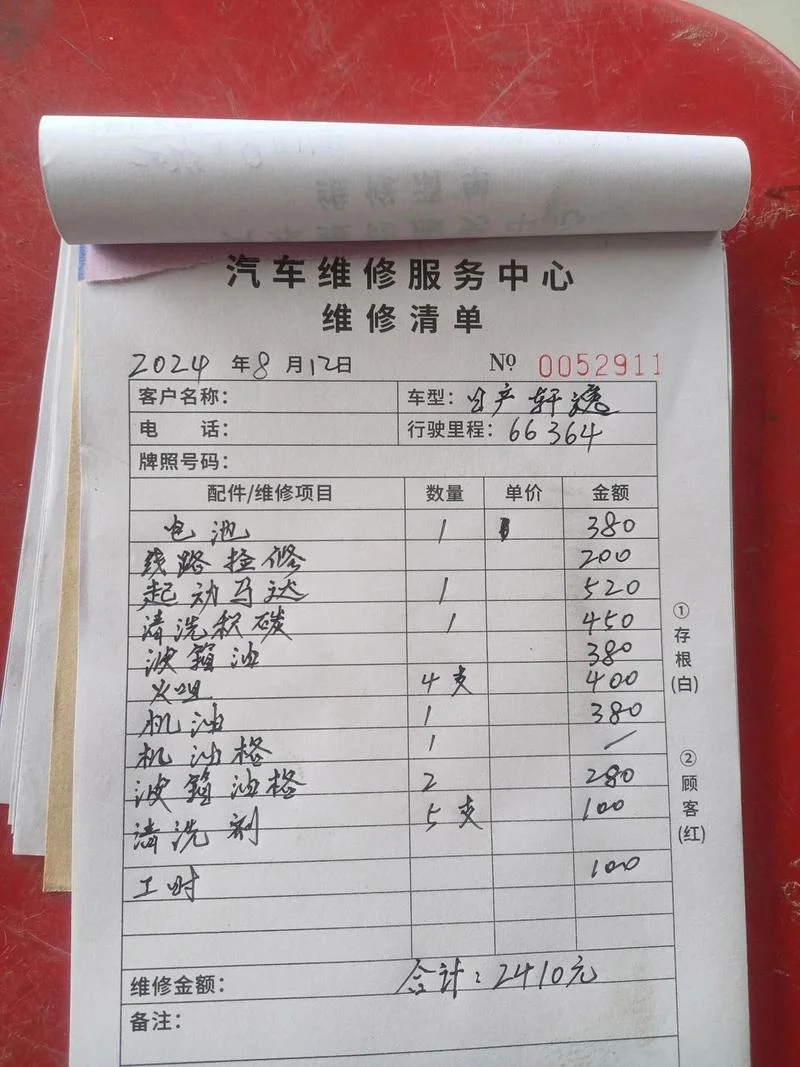 汽车维修服务中心
维修清单
2024 年 8 月 12日 Nº 0052911
客户名称: 车型: 日产轩逸
电 话: 行驶里程: 66364
牌照号码:
配件/维修项目 数量 单价 金额
电池 1 380
线路检修 200
起动马达 1 520
清洗积碳 1 450
波箱油 380
火咀 4支 400
机油 1 380
机油格 1 /
波箱油格 2 280
清洗剂 5支 100
工时 100
维修金额: 合计: 2410元
备注:
①存根(白)
②顾客(红)